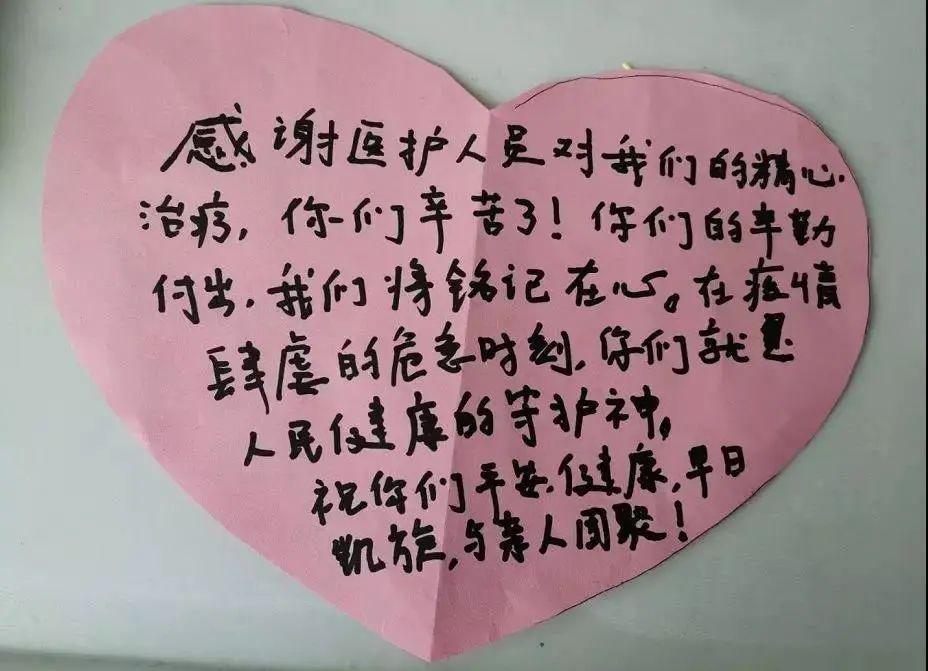 感谢医护人员对我们的精心
治疗，你们辛苦了！你们的辛勤
付出，我们将铭记在心。在疫情
肆虐的危急时刻，你们就是
人民健康的守护神。
祝你们平安、健康，早日
凯旋，与亲人团聚！